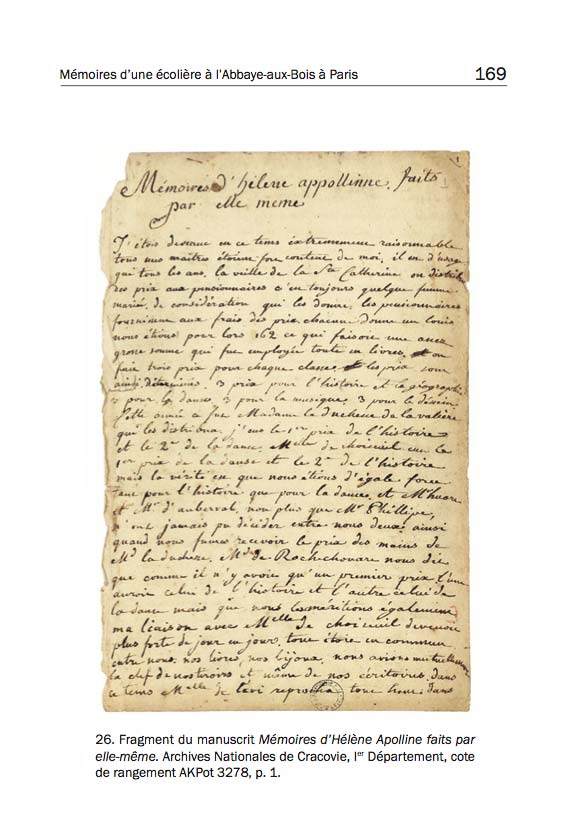 Mémoires d’une écolière à l’Abbaye-aux-Bois à Paris 169
Mémoires d'hélene appollinne, faits
par elle meme
J'étois devenue en ce tems extremement raisonnable
tous mes maitres étoient fort contens de moi, il est d'usage
qui tous les ans, la veille de la Ste Catherine on distribue
des prix aux pensionnaires c'est toujours quelque femme
mariée de considération qui les donne, les pensionnaires
fournissent aux frais des prix chacune donne un louis
nous étions pour lors 162 ce qui faisoit une assez
grosse somme qui fut employée toute en livres, on
fait trois prix pour chaque classe, les prix sont
ainsi déterminés, 3 prix pour l'histoire et la géographie
3 pour la danse, 3 pour la musique, 3 pour le dessein
cette année ce fut Madame la duchesse de la valière
qui les distribua, j'eus le 1er prix de l'histoire
et le 2e de la danse, Melle de choiseuil eut le
1er prix de la danse et le 2e de l'histoire
mais la vérité est que nous étions d'égale force
tant pour l'histoire que pour la danse, et Mr huart
et Mr d'auberval, non plus que Mr Phillipe,
n'ont jamais pu décider entre nous deux, ainsi
quand nous fumes recevoir le prix des mains de
Md la duchesse, Md de Rochechouart nous dit
que comme il n'y avoit qu'un premier prix l'une
auroit celui de l'histoire et l'autre celui de
la danse mais que nous les méritions également
ma liaison avec Melle de choiseuil devenoit
plus forte de jour en jour, tout étoit en commun
entre nous, nos livres, nos bijoux, nous avions mutuellement
la clef de nos tiroirs et même de nos écritoires, dans
ce tems Melle de lévi reprocha tout haut dans
26. Fragment du manuscrit Mémoires d’Hélène Apolline faits par
elle-même. Archives Nationales de Cracovie, Ier Département, cote
de rangement AKPot 3278, p. 1.